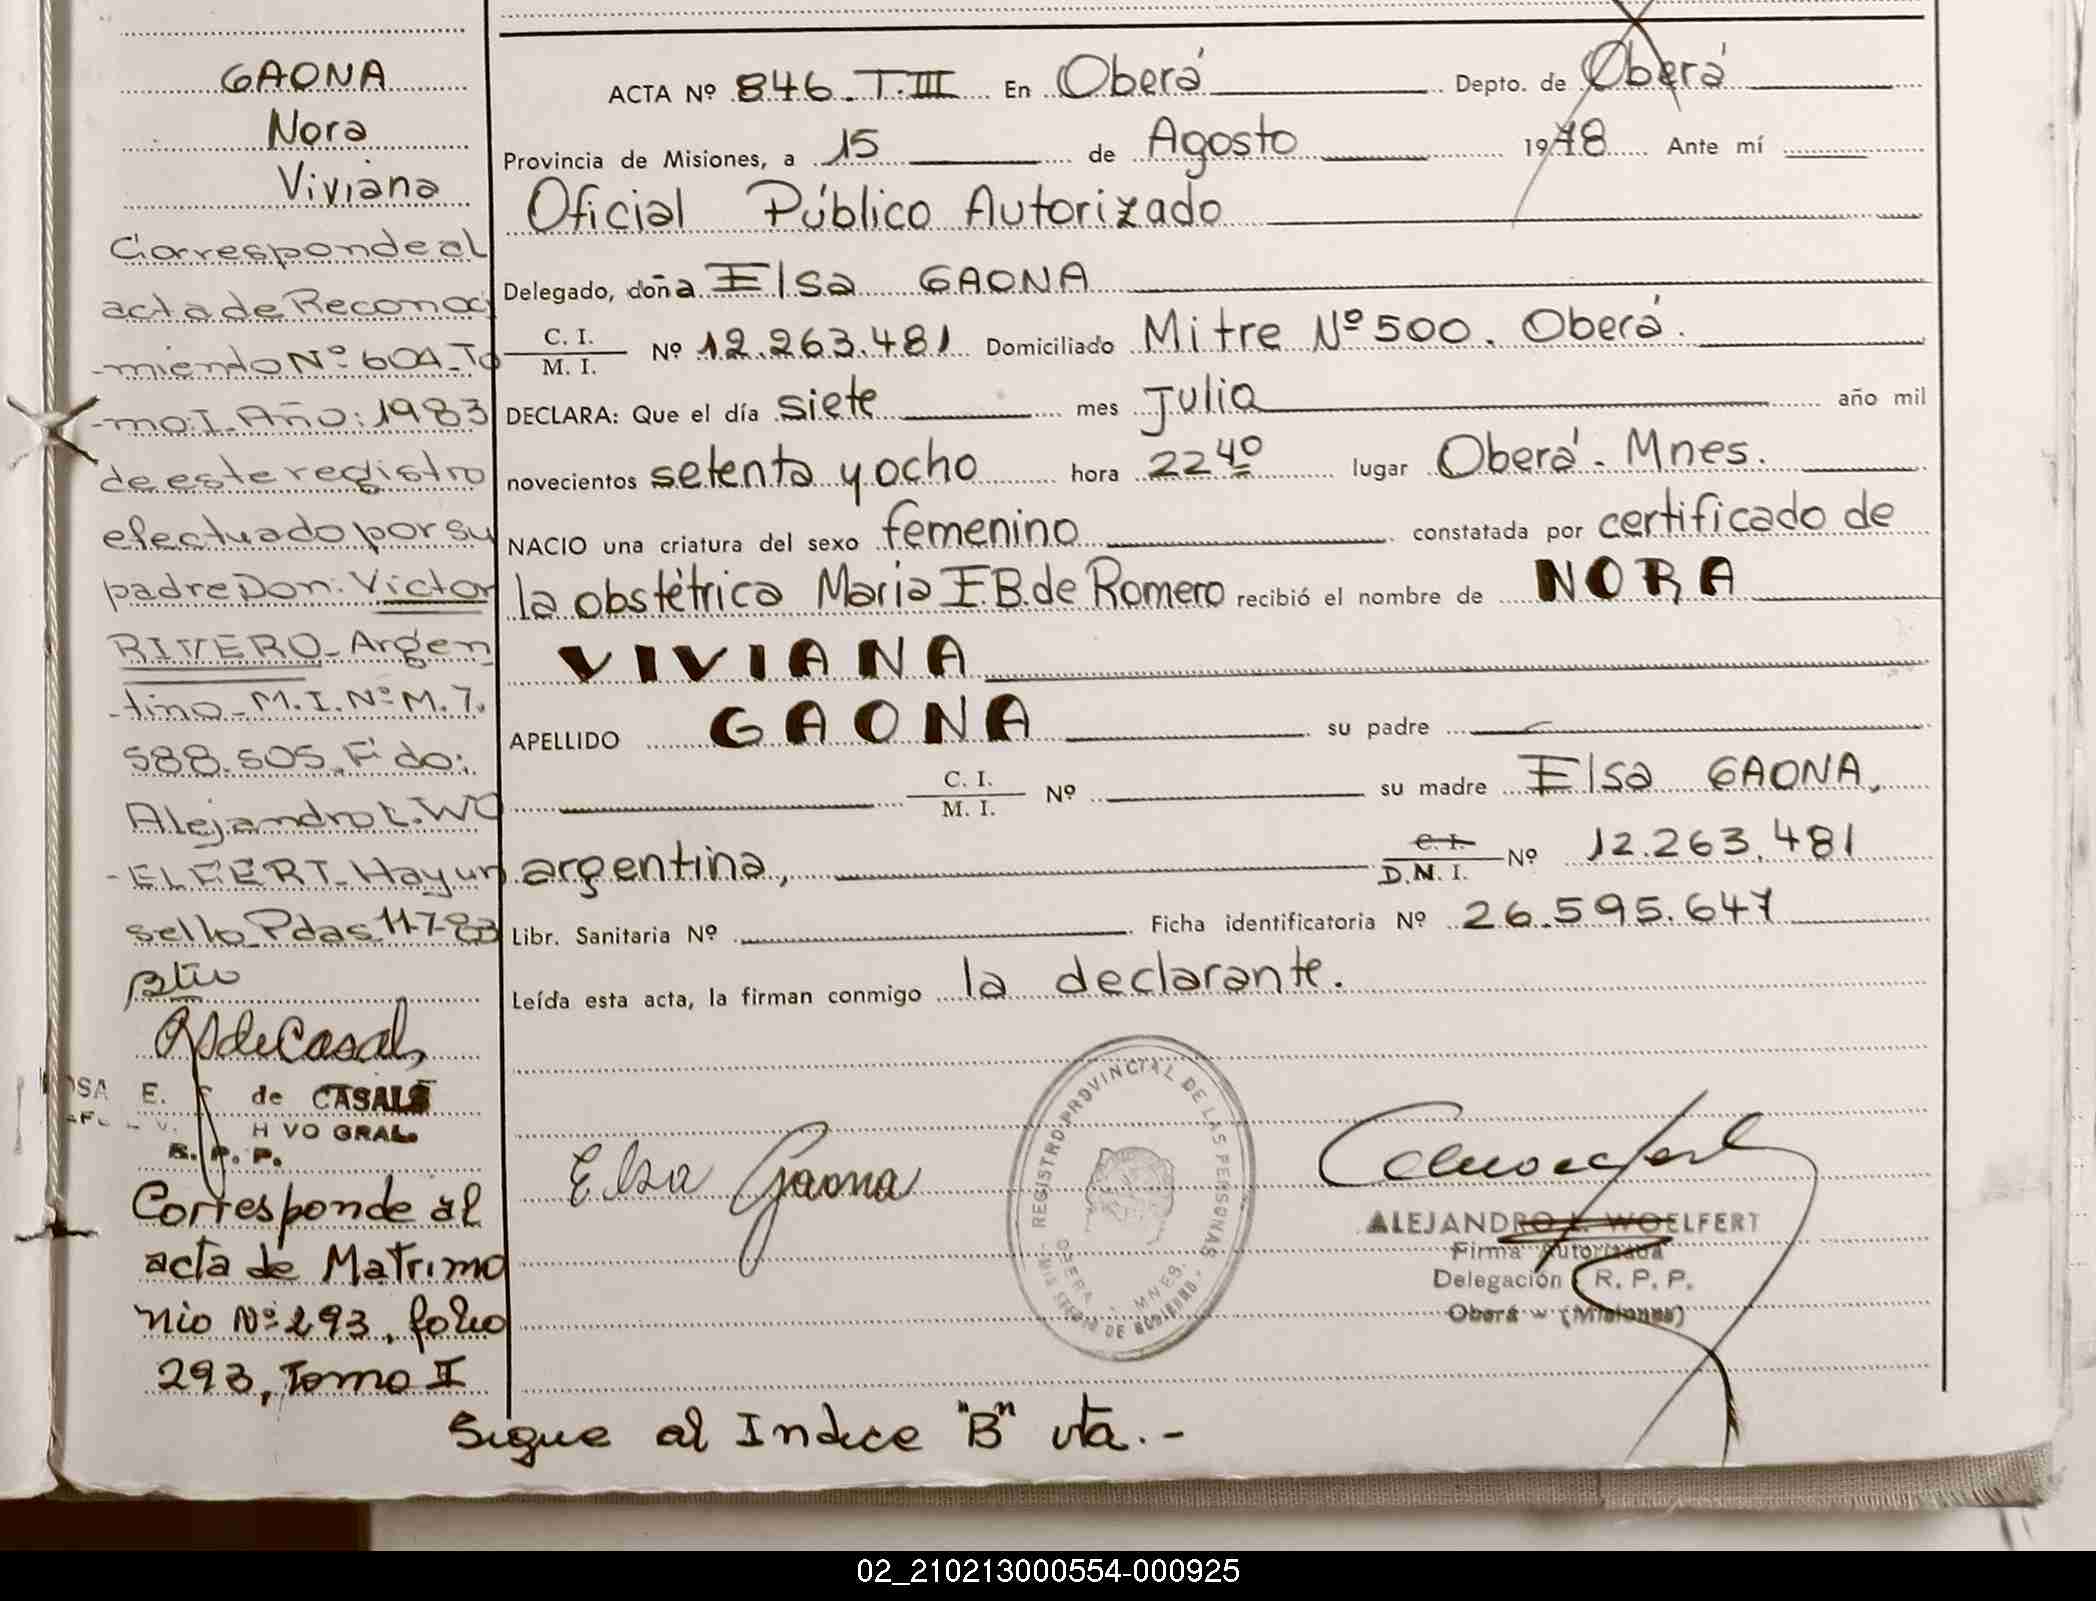 GAONA
Nora
Viviana
Corresponde al
acta de Reconoci
-miento Nº 604-To
-mo: I. Año: 1983
de este registro
efectuado por su
padre Don: Victor
RIVERO-Argen
-tino-M.I.Nº M.7.
588.505. F'do:
Alejandro L. WO
-ELFERT-Hay un
sello-Pdas 11-7-83
R de Casals
E. de CASALS
H VO GRAL.
R. P. P.
Corresponde al
acta de Matrimo
nio Nº 293, folio
293, Tomo II
ACTA Nº 846. T.III En Oberá Depto. de Oberá
Provincia de Misiones, a 15 de Agosto 1978 Ante mí
Oficial Público Autorizado
Delegado, doña Elsa GAONA
C. I.
M. I. Nº 12.263.481 Domiciliado Mitre Nº 500. Oberá.
DECLARA: Que el día siete mes Julio año mil
novecientos setenta y ocho hora 22 40 lugar Oberá. Mnes.
NACIO una criatura del sexo femenino constatada por certificado de
la obstétrica Maria E.B.de Romero recibió el nombre de NORA
VIVIANA
APELLIDO GAONA su padre
C. I.
M. I. Nº su madre Elsa GAONA,
argentina, C. I.
D.N.I. Nº 12.263.481
Libr. Sanitaria Nº Ficha identificatoria Nº 26.595.647
Leída esta acta, la firman conmigo la declarante.
REGISTRO PROVINCIAL DE LAS PERSONAS
MINISTERIO DE GOBIERNO
OBERA - MNES.
Elsa Gaona
ALEJANDRO L. WOELFERT
Firma Autorizada
Delegación R. P. P.
Oberá - (Misiones)
Sigue al Indice "B" vta.-
02_210213000554-000925